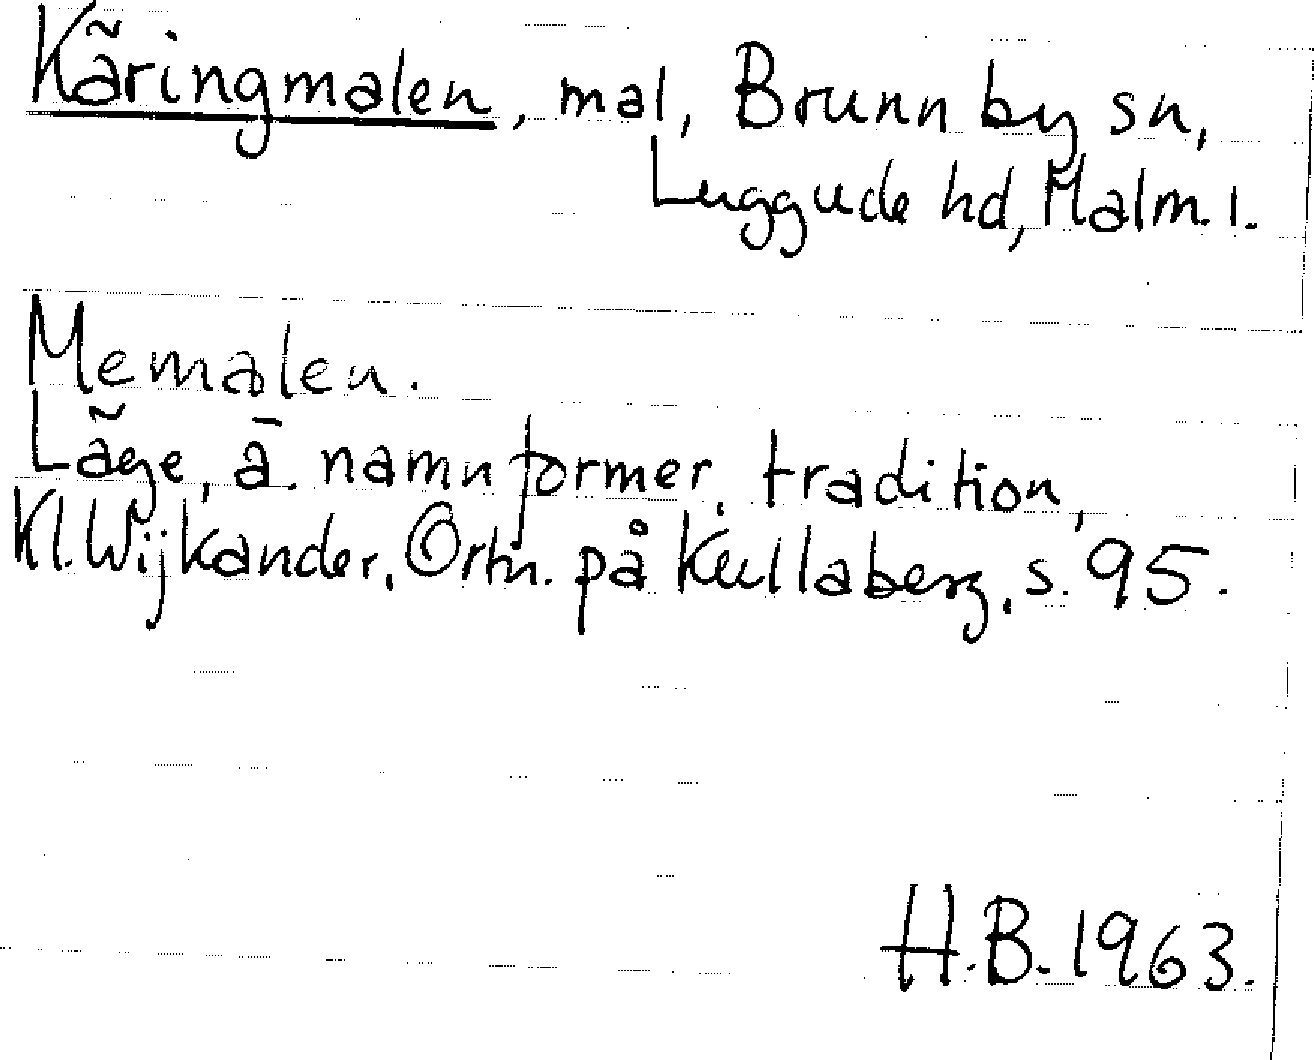 Käringmalen, mal, Brunnby sn,
Luggude hd, Malm. l.
Memalen.
Läge, ä. namnformer, tradition,
Kl. Wijkander, Ortn. på Kullaberg, s. 95.
H.B. 1963.